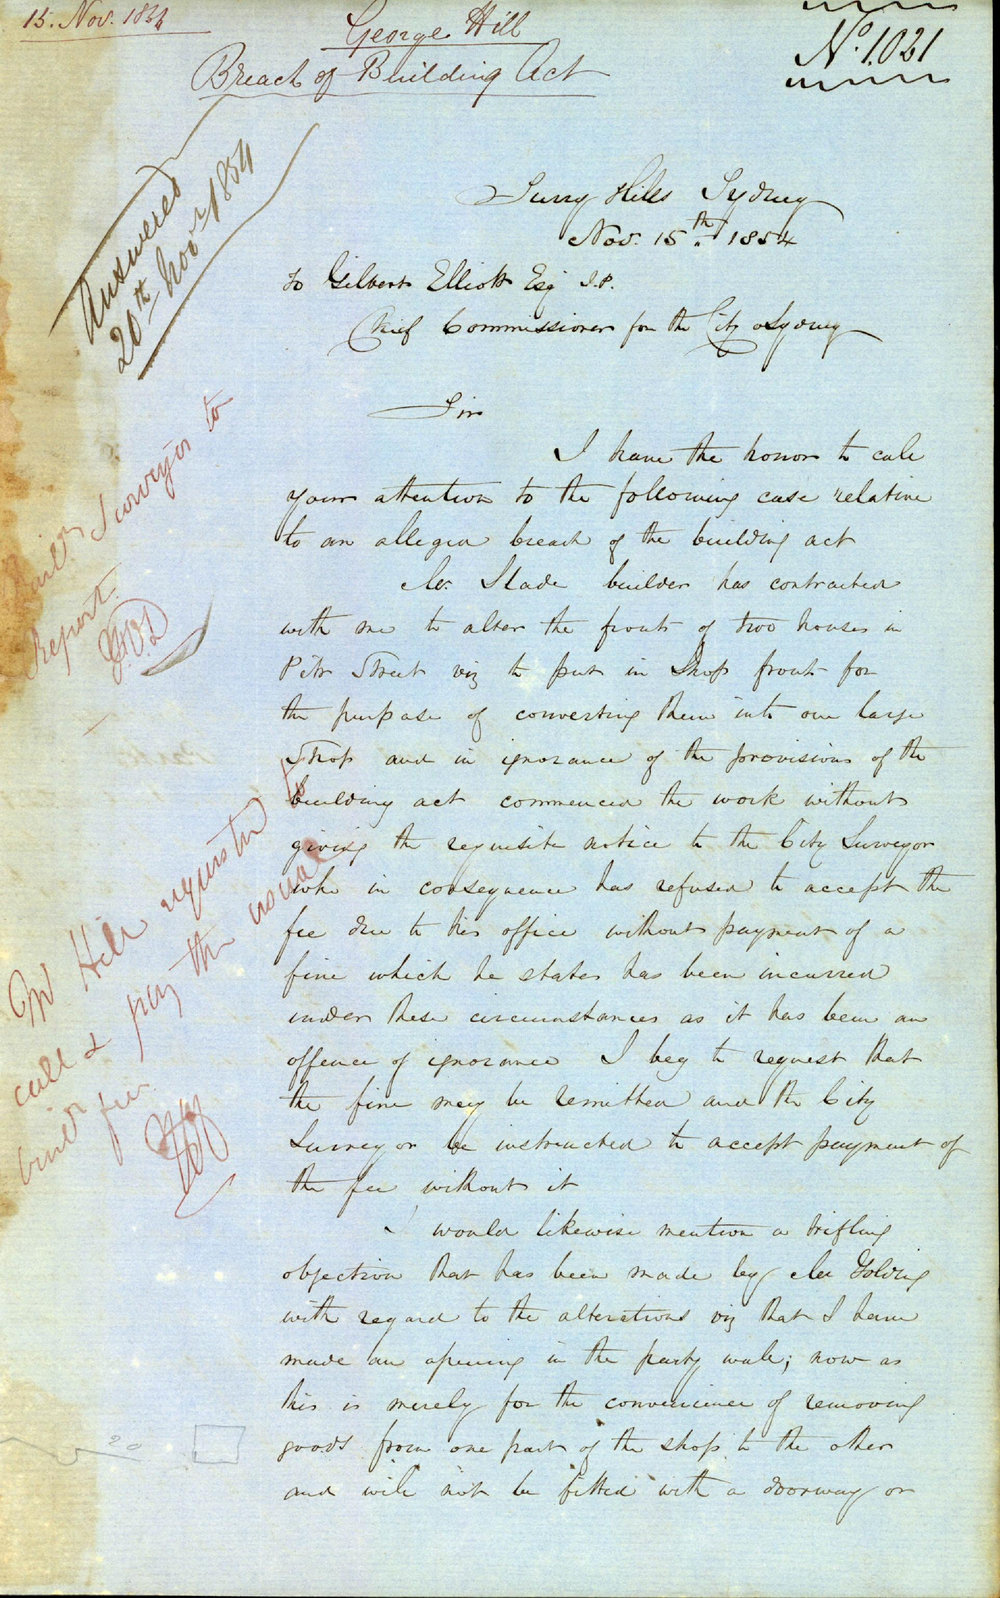 15. Nov. 1854
George Hill
Breach of Building Act
No. 1.021
Answered
20th Novr 1854
Surry Hills Sydney
Nov. 15th 1854
To Gilbert Elliott Esq J.P.
Chief Commissioner for the City of Sydney
Sir
I have the honor to call
your attention to the following case relative
to an alleged breach of the building act
Mr. Slade builder has contracted
with me to alter the fronts of two houses in
Pitt Street viz to put in Shop front for
the purpose of converting them into one large
Shop and in ignorance of the provisions of the
building act commenced the work without
giving the requisite notice to the City Surveyor
who in consequence has refused to accept the
fee due to his office without payment of a
fine which he states has been incurred
under these circumstances as it has been an
offence of ignorance I beg to request that
the fine may be remitted and the City
Surveyor be instructed to accept payment of
the fee without it
I would likewise mention a trifling
objection that has been made by Mr Golding
with regard to the alterations viz that I have
made an opening in the party wall; now as
this is merely for the convenience of removing
goods from one part of the shop to the other
and will not be fitted with a doorway or
Surveyor to
Report.
Mr Hill requested to
call & pay the usual
fee
20